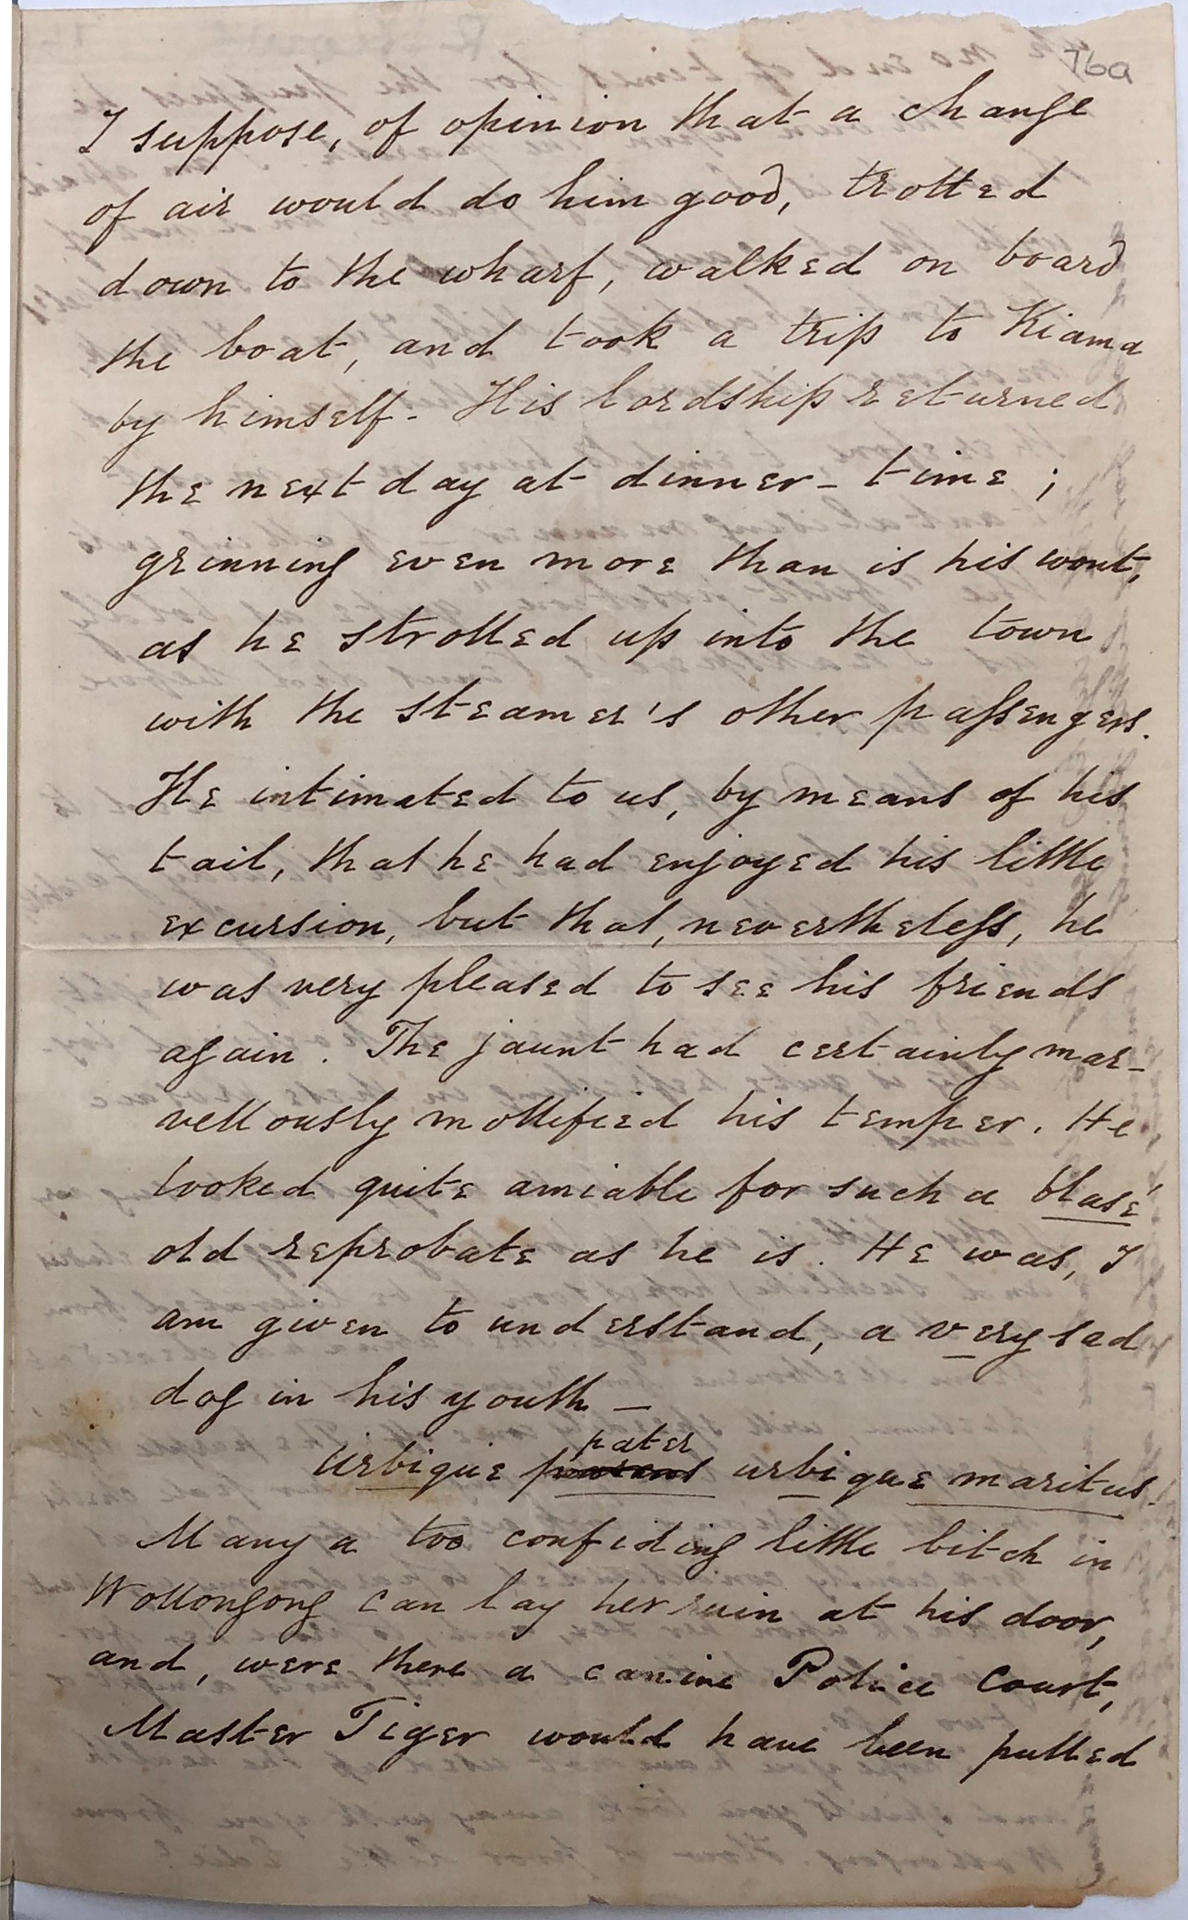 76a
I suppose, of opinion that a change
of air would do him good, trotted
down to the wharf, walked on board
the boat, and took a trip to Kiama
by himself - His lordship returned
the next day at dinner-time ;
grinning even more than is his wont,
as he strolled up into the town
with the steamer's other passengers.
He intimated to us, by means of his
tail, that he had enjoyed his little
excursion, but that, nevertheless, he
was very pleased to see his friends
again. The jaunt had certainly mar-
vellously mollified his temper. He
looked quite amiable for such a blasé
old reprobate as he is. He was, I
am given to understand, a very sad
dog in his youth —
pater
Urbique parens urbique maritus.
Many a too confiding little bitch in
Wollongong can lay her ruin at his door,
and, were there a canine Police Court,
Master Tiger would have been pulled